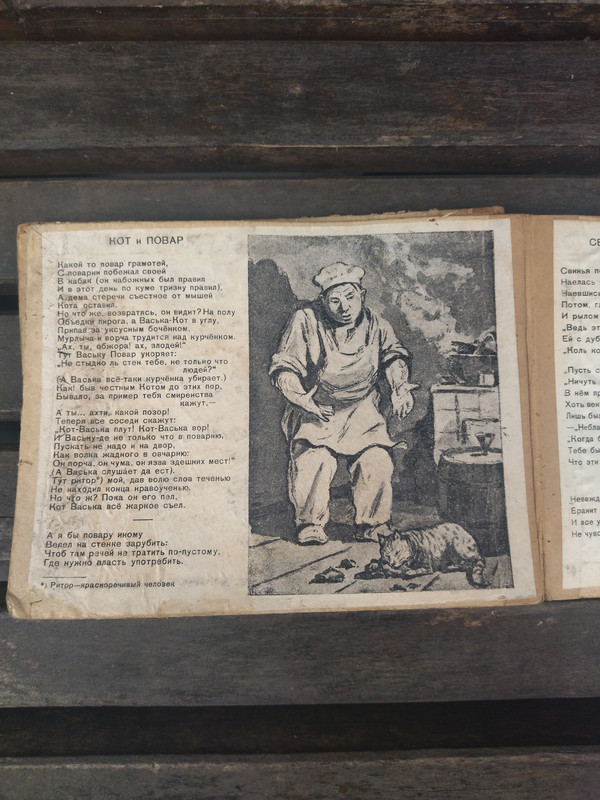 КОТ и ПОВАР
Какой то повар грамотей,
С поварни побежал своей
В кабак (он набожных был правил
И в этот день по куме тризну правил),
А дома стеречи съестное от мышей
Кота оставил.
Но что же, возвратясь, он видит? На полу
Объедки пирога, а Васька-Кот в углу,
Припав за уксусным бочёнком,
Мурлыча и ворча трудится над курчёнком.
„Ах, ты, обжора! ах, злодей!"
Тут Ваську Повар укоряет:
„Не стыдно ль стен тебе, не только что
людей?"
(А Васька всё-таки курчёнка убирает.)
Как! быв честным Котом до этих пор,
Бывало, за пример тебя смиренства
кажут,—
А ты... ахти, какой позор!
Теперя все соседи скажут:
„Кот-Васька плут! Кот-Васька вор!
И Ваську-де не только что в поварню,
Пускать не надо и на двор,
Как волка жадного в овчарню:
Он порча, он чума, он язва здешних мест!"
(А Васька слушает да ест).
Тут ритор*) мой, дав волю слов теченью
Не находил конца нравоученью.
Но что ж? Пока он его пел,
Кот Васька всё жаркое съел.
А я бы повару иному
Велел на стенке зарубить:
Чтоб там речей не тратить по-пустому,
Где нужно власть употребить.
*) Ритор—красноречивый человек
СВ
Свинья по
Наелась
Наевшись
Потом, гл
И рылом
„Ведь эт
Ей с дуб
„Коль ко
„Пусть с
„Ничуть
В нём пр
Хоть век
Лишь бы
—„Небла
„Когда б
Тебе бы
Что эти
Невежд
Бранит
И все у
Не чувс